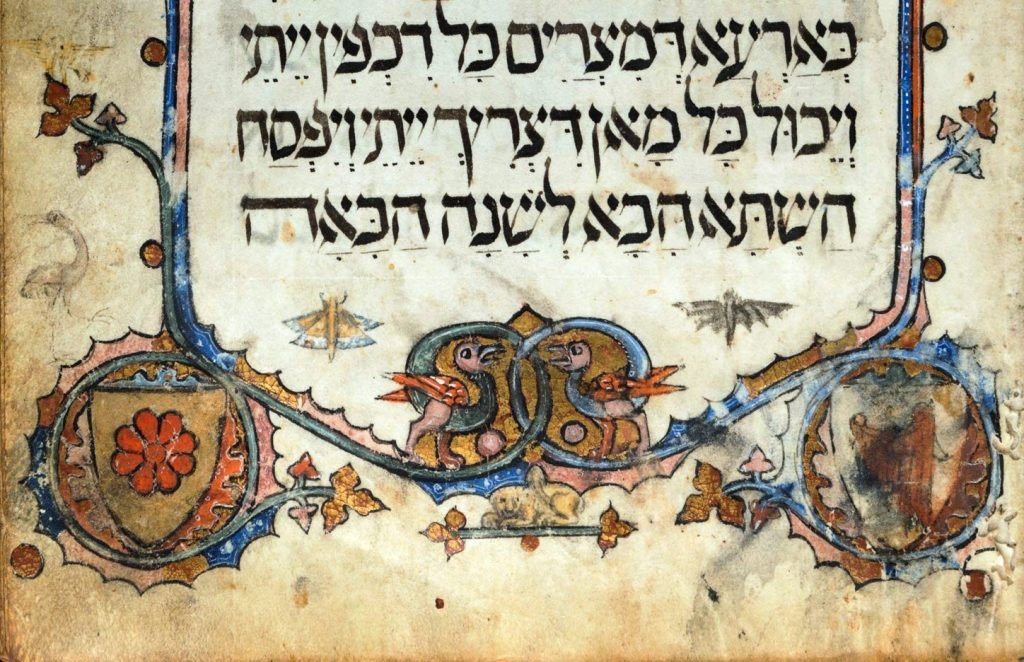 בְּאַרְעָא דְּמִצְרַיִם כָּל דִכְפִין יֵיתֵי
וְיֵכוּל כָּל מַאן דִּצְרִיךְ יֵיתֵי וְיִפְסַח
הָשַׁתָּא הָכָא לְשָׁנָה הַבָּאָה